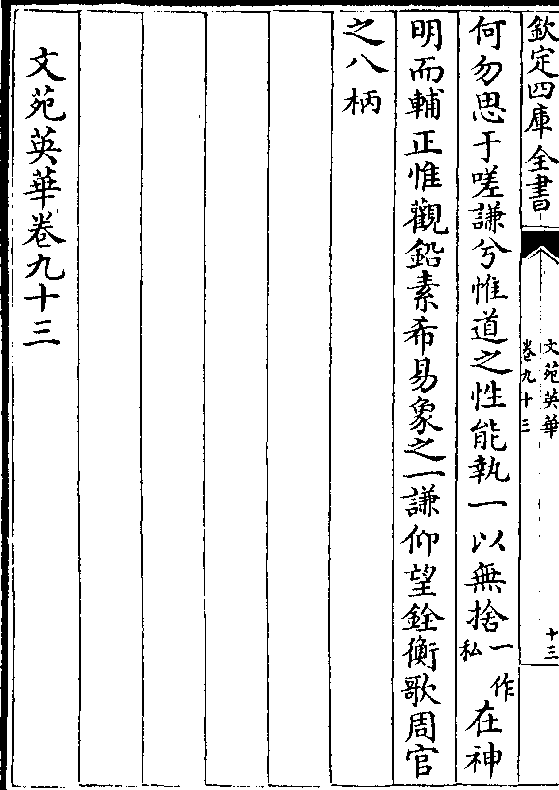 欽定四庫全書
文苑英華
卷九十三
十三
何勿思于嗟謙兮惟道之性能執一以無捨一作私在神
明而輔正惟觀鉛素希易象之一謙仰望銓衡歌周官
之八柄
文苑英華卷九十三